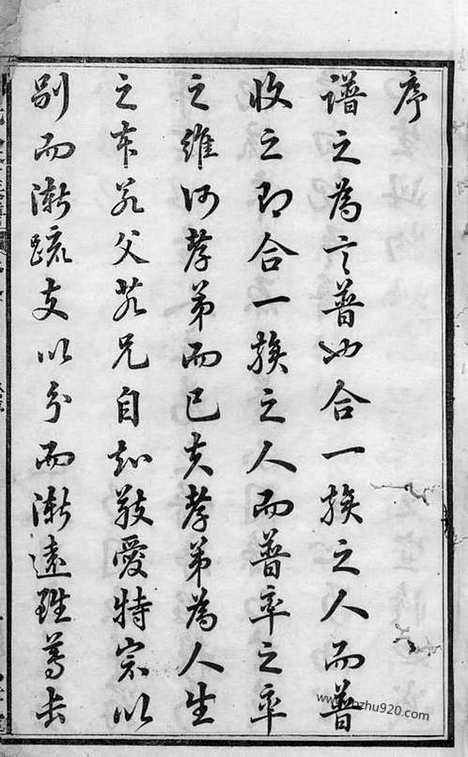 序
譜之為言普也合一族之人而普
收之即合一族之人而普率之率
之維何孝弟而已夫孝弟為人生
之本若父若兄自知敬愛特宗以
別而漸疏支以分而漸遠雖尊長
zhu920.com